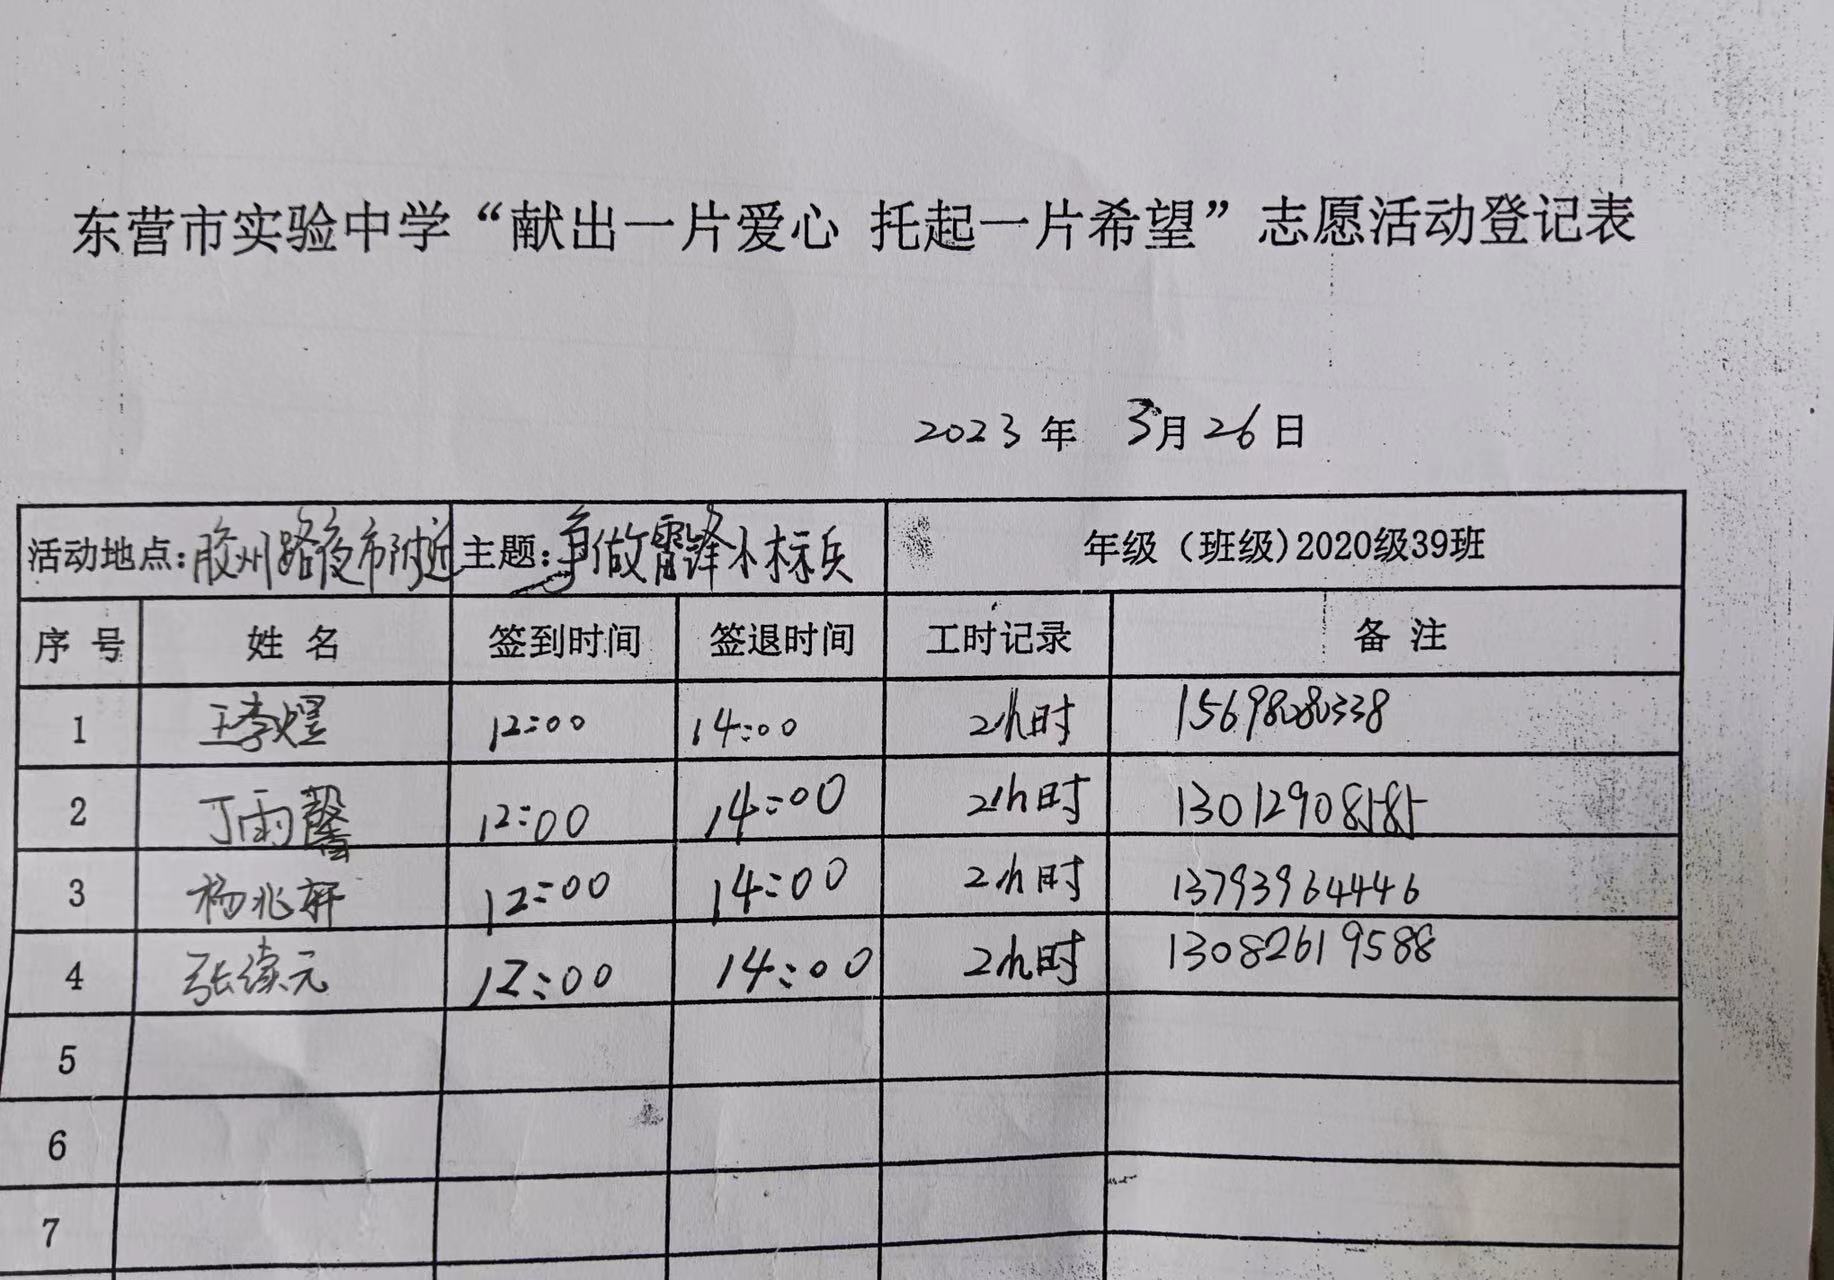 东营市实验中学“献出一片爱心 托起一片希望”志愿活动登记表
2023年 3月26日
活动地点:胶州路夜市附近 主题:争做雷锋小标兵 年级（班级)2020级39班
序号 姓名 签到时间 签退时间 工时记录 备注
1 王李煜 12:00 14:00 2小时 15698080338
2 丁雨馨 12:00 14:00 2小时 13012908585
3 杨兆轩 12:00 14:00 2小时 13793964446
4 张续元 12:00 14:00 2小时 13082619588
5
6
7